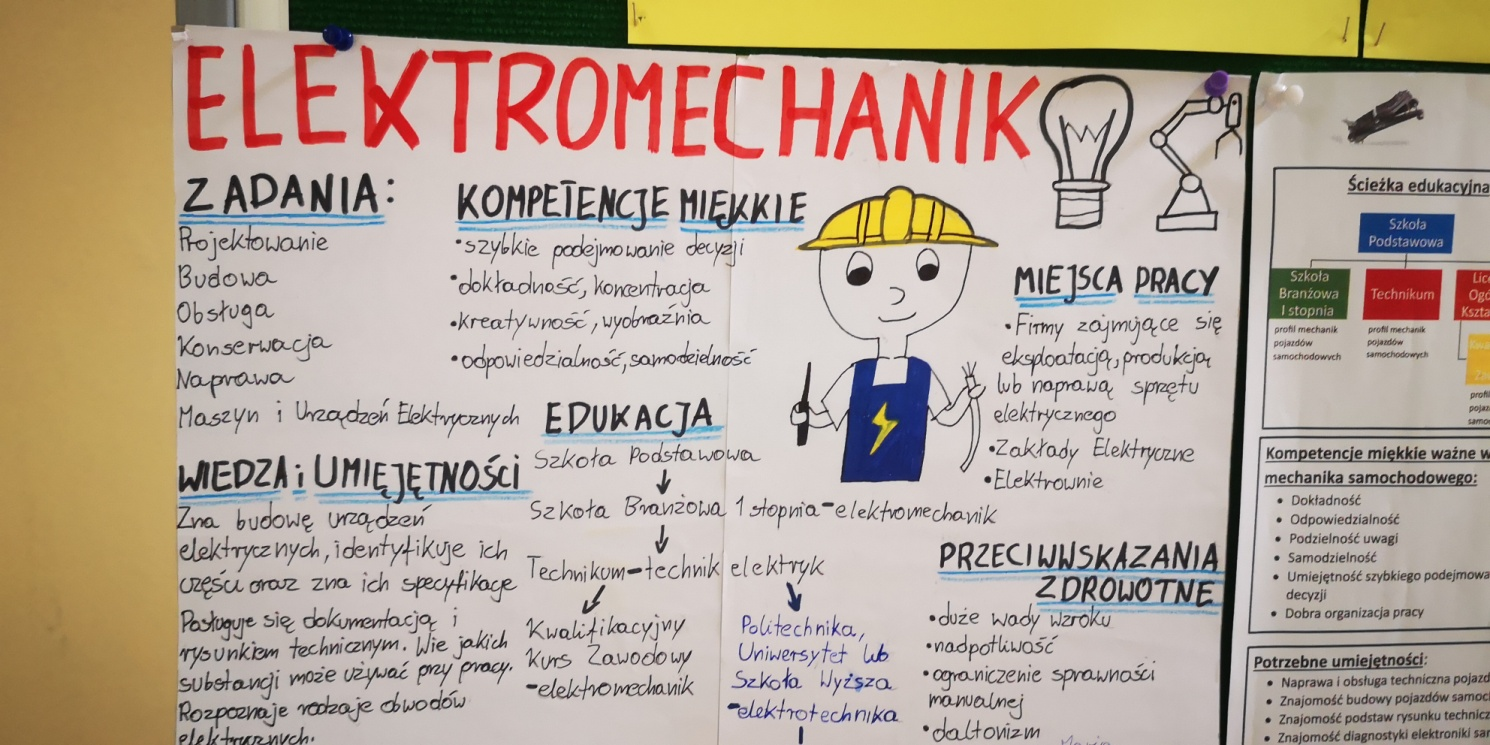 ELEKTROMECHANIK
ZADANIA:
Projektowanie
Budowa
Obsługa
Konserwacja
Naprawa
Maszyn i Urządzeń Elektrycznych
WIEDZA i UMIEJĘTNOŚCI
Zna budowę urządzeń
elektrycznych, identyfikuje ich
części oraz zna ich specyfikację
Posługuje się dokumentacją i
rysunkiem technicznym. Wie jakich
substancji może używać przy pracy.
Rozpoznaje rodzaje obwodów
elektrycznych.
KOMPETENCJE MIĘKKIE
•szybkie podejmowanie decyzji
•dokładność, koncentracja
•kreatywność, wyobraźnia
•odpowiedzialność, samodzielność
EDUKACJA
Szkoła Podstawowa
Szkoła Branżowa 1 stopnia-elektromechanik
Technikum-technik elektryk
Kwalifikacyjny
Kurs Zawodowy
-elektromechanik
Politechnika,
Uniwersytet lub
Szkoła Wyższa
-elektrotechnika
MIEJSCA PRACY
•Firmy zajmujące się
eksploatacją, produkcją
lub naprawą sprzętu
elektrycznego
•Zakłady Elektryczne
•Elektrownie
PRZECIWWSKAZANIA
ZDROWOTNE
•duże wady wzroku
•nadpotliwość
•ograniczenie sprawności
manualnej
•daltonizm
Ścieżka edukacyjna
Szkoła
Podstawowa
Szkoła
Branżowa
I stopnia
profil mechanik
pojazdów
samochodowych
Technikum
profil mechanik
pojazdów
samochodowych
Kompetencje miękkie ważne w
mechanika samochodowego:
• Dokładność
• Odpowiedzialność
• Podzielność uwagi
• Samodzielność
• Umiejętność szybkiego podejmowa
decyzji
• Dobra organizacja pracy
Potrzebne umiejętności:
• Naprawa i obsługa techniczna pojazd
• Znajomość budowy pojazdów samoc
• Znajomość podstaw rysunku technicz
• Znajomość diagnostyki elektroniki sam